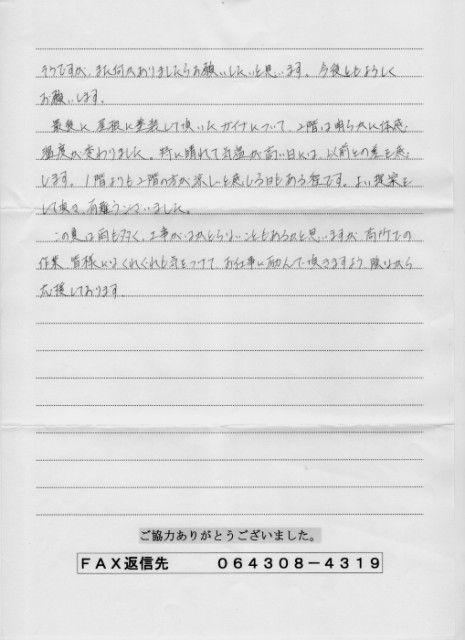 ですが、また何かありましたらお願いしたいと思います。今後ともよろしく
お願いします。
最後に、屋根に塗装して頂いたガイナについて、2階は明らかに体感
温度が変わりました。特に晴れて気温が高い日には、以前との差を感
じます。1階よりも2階の方が涼しいと感じる日もある程です。よい提案を
して頂き、有難うございました。
この夏は雨も多く、工事がはかどらないこともあるかと思いますが、高所での
作業、皆様にはくれぐれも気をつけて、お仕事に励んで頂きますよう陰ながら
応援しております。
ご協力ありがとうございました。
FAX返信先 064308-4319